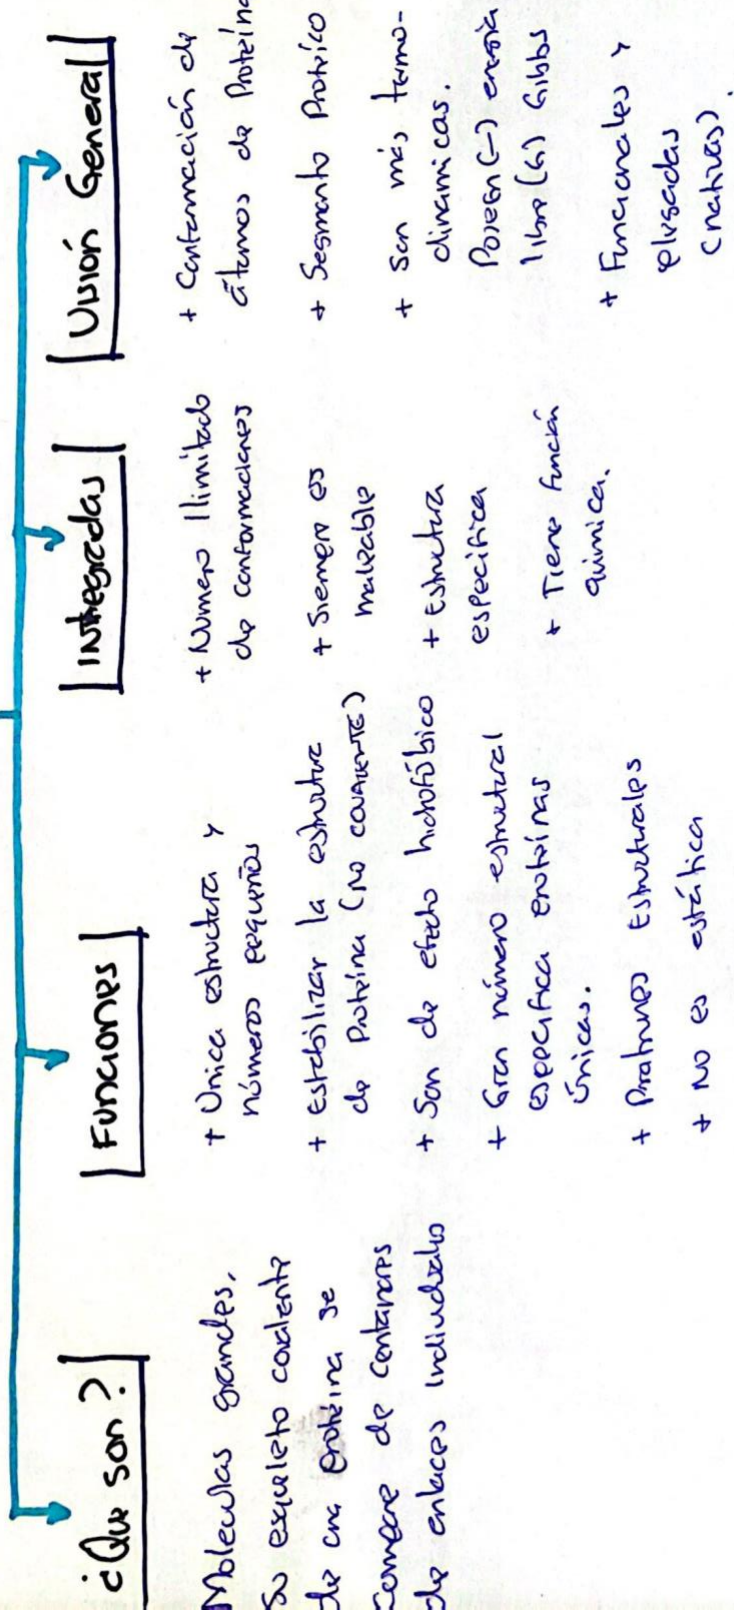 ¿Que son?
Moleculas grandes.
Su esqueleto covalente
de una proteína se
compone de centenares
de enlaces individuales
Funciones
+ Unica estructura y
números pequeños
+ Estabilizar la estrutura
de proteína (no covalente)
+ Son de efecto hidrofóbico
+ Gran número estructural
especifica proteínas
únicas.
+ Patrones Estructurales
+ No es estática
Integradas
+ Número Ilimitado
de conformaciones
+ Siempre es
maleable
+ Estructura
especifica
+ Tiene función
química.
Visión General
+ Conformación de
átomos de Proteína
+ Segmento Protéico
+ Son más termo-
dinamicas.
Poseen (-) energía
libre (G) Gibbs
+ Funcionales y
plegadas
(nativas).